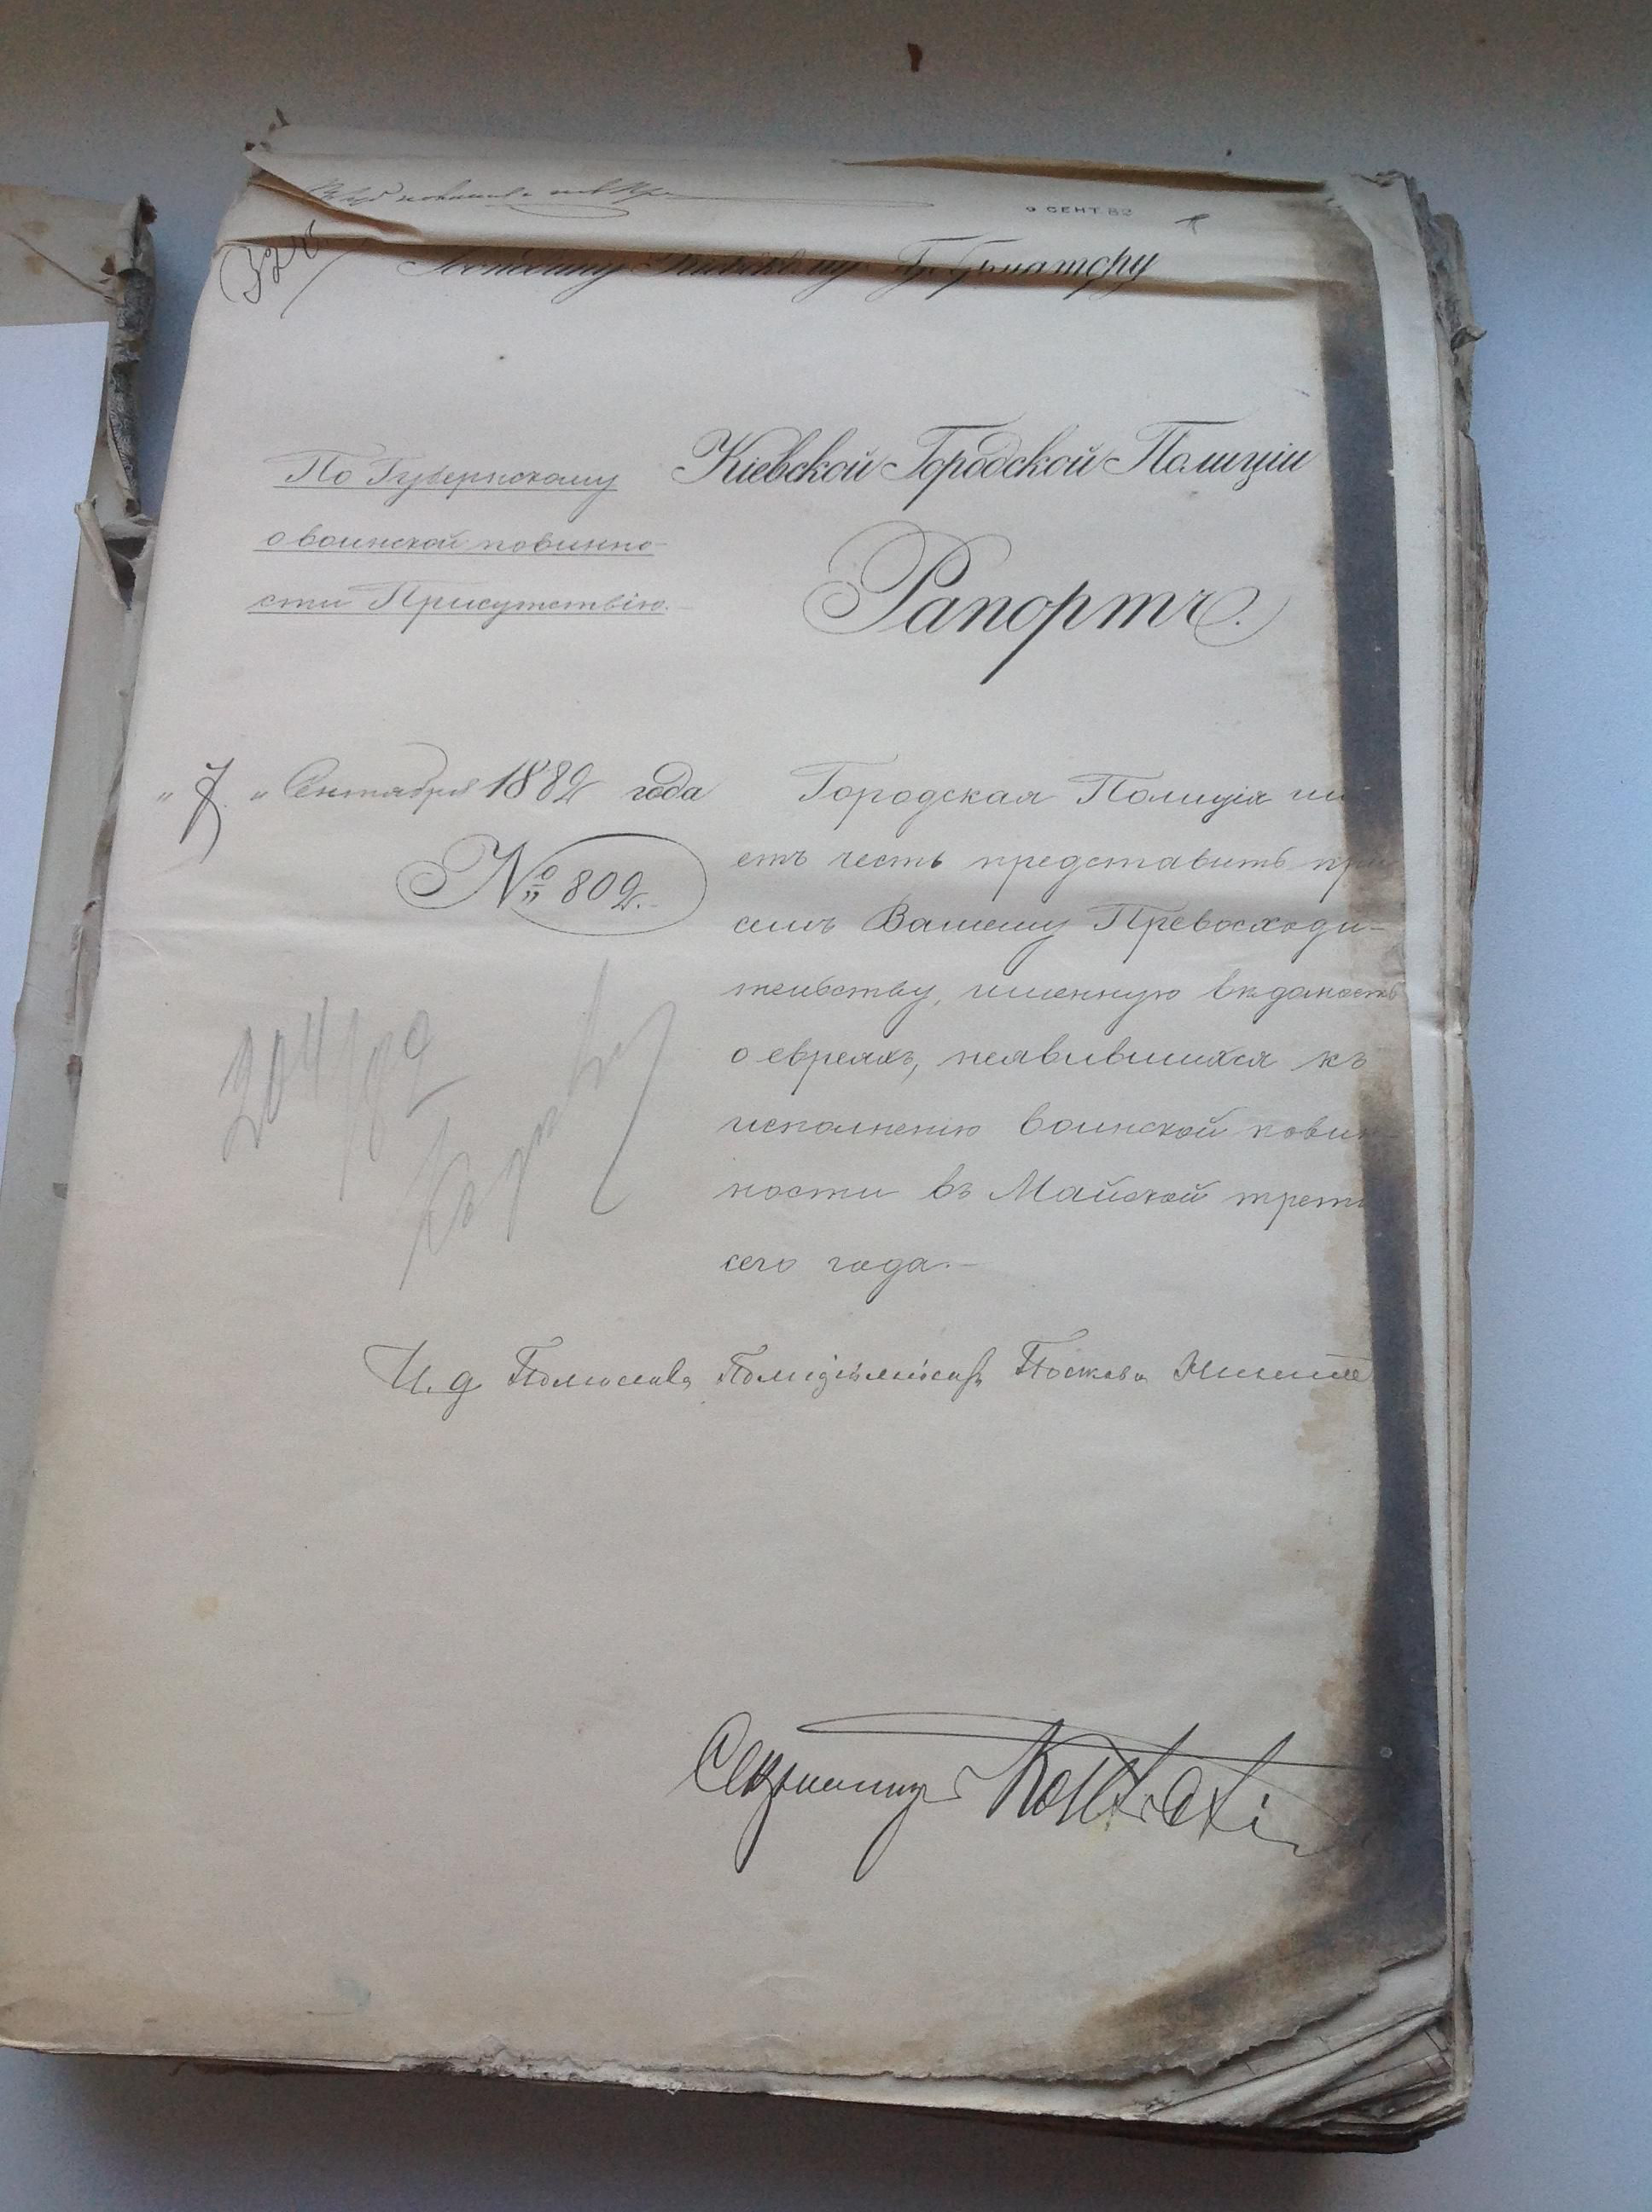 9 СЕНТ. 82
Господину Киевскому Губернатору
По Губернскому
о воинской повинно-
сти Присутствію.
Кіевской Городской Полиціи
Рапортъ.
„7„ Сентября 1882 года
№ 802.
Городская Полиція им
еетъ честь представить при
семъ Вашему Превосходи-
тельству, именную вѣдомость
о евреяхъ, неявившихся къ
исполненію воинской повин-
ности въ Майской трети
сего года.-
И. д.
Секретарь
204/82